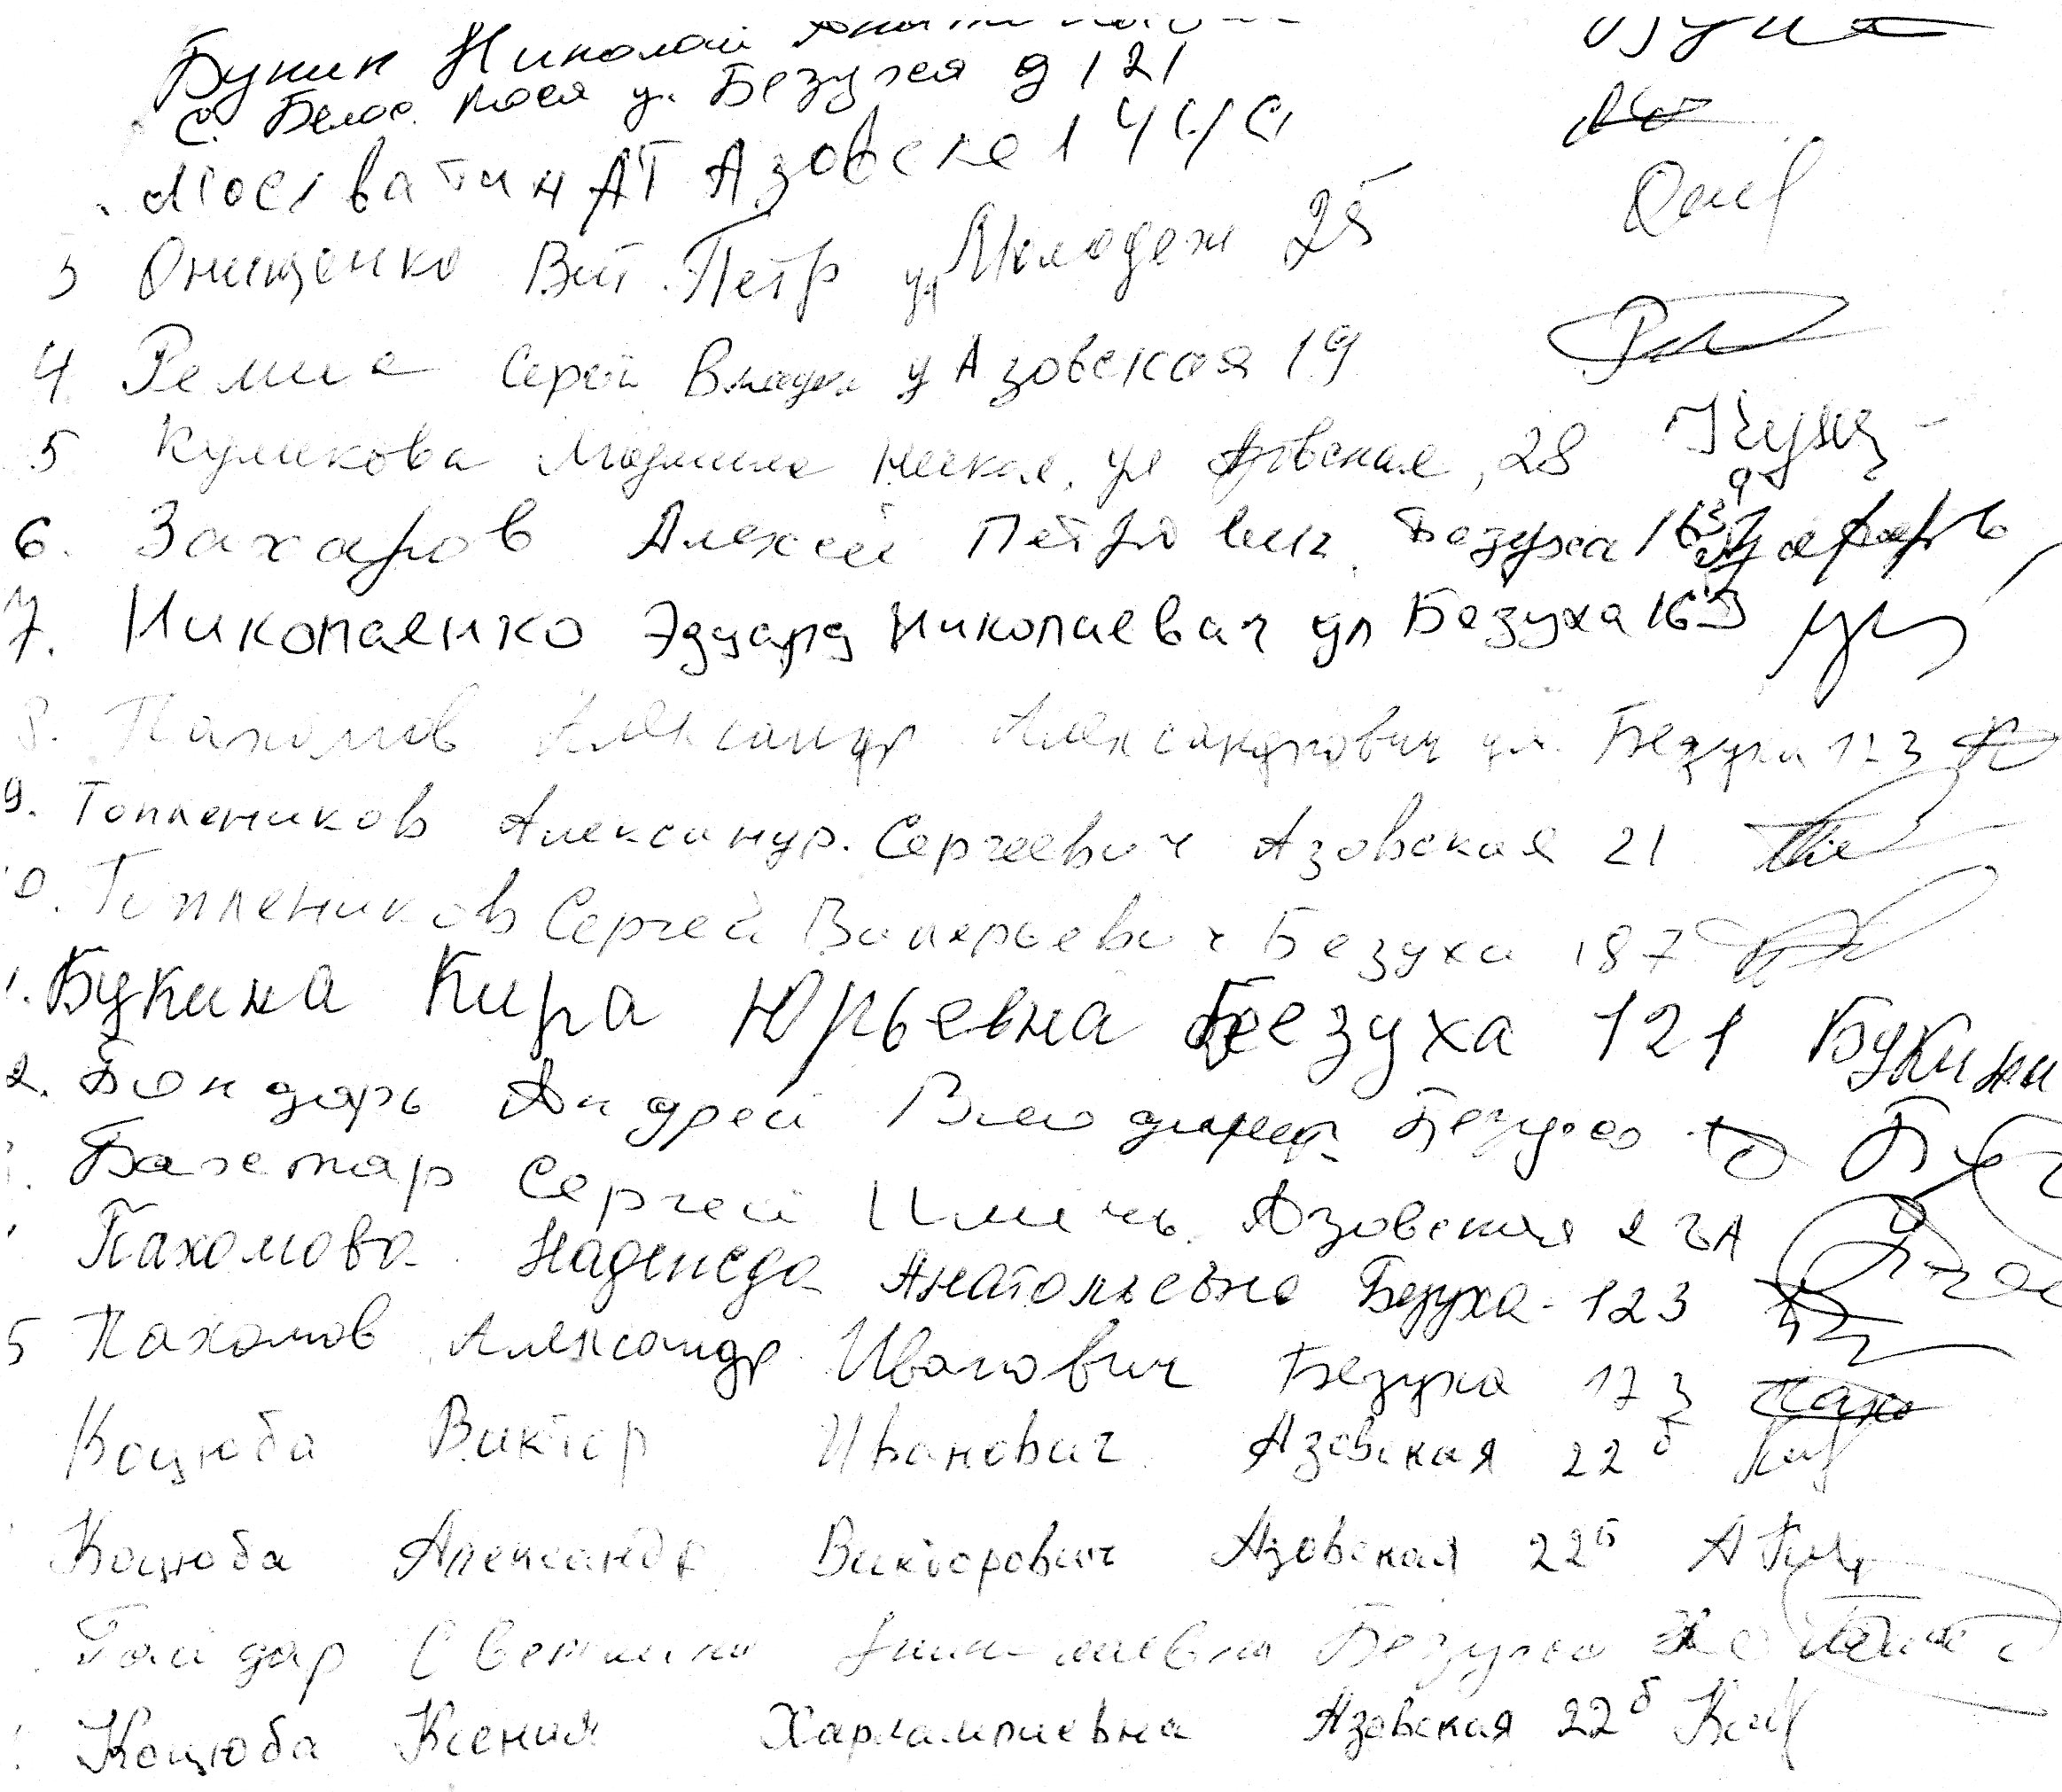 Букин Николай
с. Белос. ул. Безуха д 121
АТ Азовске 144а
3 Онищенко Вит. Петр ул Молодеж 25
4 Сергей Влад у Азовская 19
5 Куликова Людмила ул Азовская, 28
6. Захаров Алексей Петрович. Безуха 163
7. Николаенко Эдуард Николаевич ул Безуха 163
8. Пахомов Александр Александрович ул. Безуха 123
9. Топлеников Александр. Сергеевич Азовская 21
0. Топлеников Сергей Валерьевич Безуха 187
1. Букина Кира Юрьевна Безуха 121 Букина
2. Бондарь Андрей Владимир Безуха
Сергей Азовская
Пахомова Надежда Анатольевна Безуха - 123
5 Пахомов Александр Иванович Безуха 123 Пахо
Коцюба Виктор Иванович Азовская 22б
Коцюба Александр Викторович Азовская 22б
Гайдар Светлана Безуха
Коцюба Ксения Харлампиевна Азовская 22б